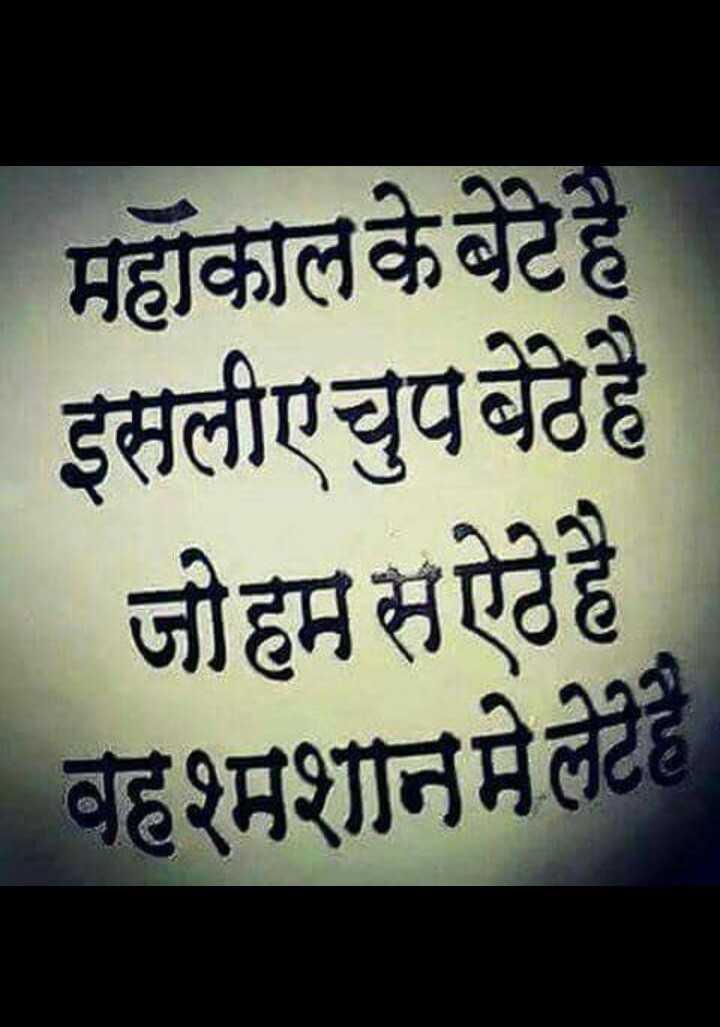 महाँकाल के बेटे है
इसलीए चुप बेठे है
जो हम स ऐठे है
वह श्मशान मे लेटे है